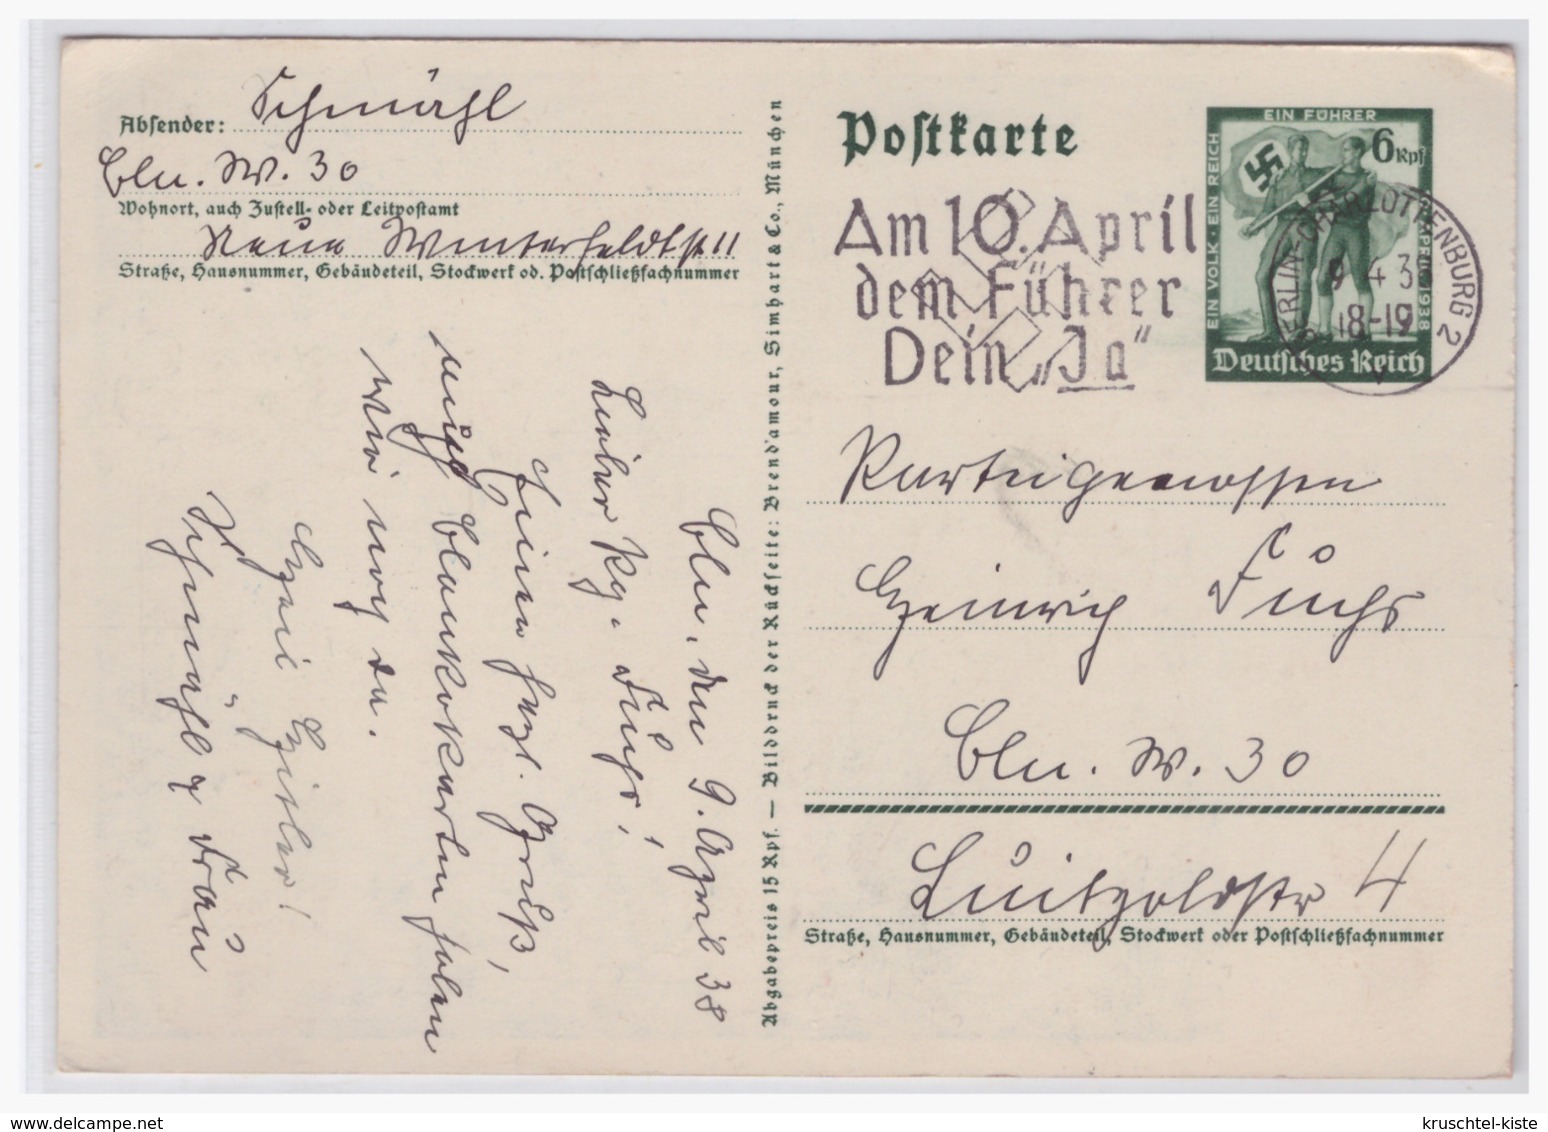 Absender: Schmähl
Bln. W. 30
Wohnort, auch Zustell- oder Leitpostamt
Neue Winterfeldtstr 11
Straße, Hausnummer, Gebäudeteil, Stockwerk od. Postschließfachnummer
Bln, den 9. April 38
Lieber Pg. Fuchs!
Einen herzl. Gruß,
Blankokarten haben
wir noch da.
Heil Hitler!
Ihr
Schmähl u Frau
Abgabepreis 15 Rpf. — Bilddruck der Rückseite: Brend'amour, Simhart & Co., München
Postkarte
EIN FÜHRER
EIN VOLK · EIN REICH
6 Rpf
1938
Deutsches Reich
Am 10. April
dem Führer
Dein „Ja“
BERLIN-CHARLOTTENBURG 2
9 4 3
18-19
Parteigenossen
Heinrich Fuchs
Bln. W. 30
Luitpoldstr 4
Straße, Hausnummer, Gebäudeteil, Stockwerk oder Postschließfachnummer
www.delcampe.net
kruschtel-kiste